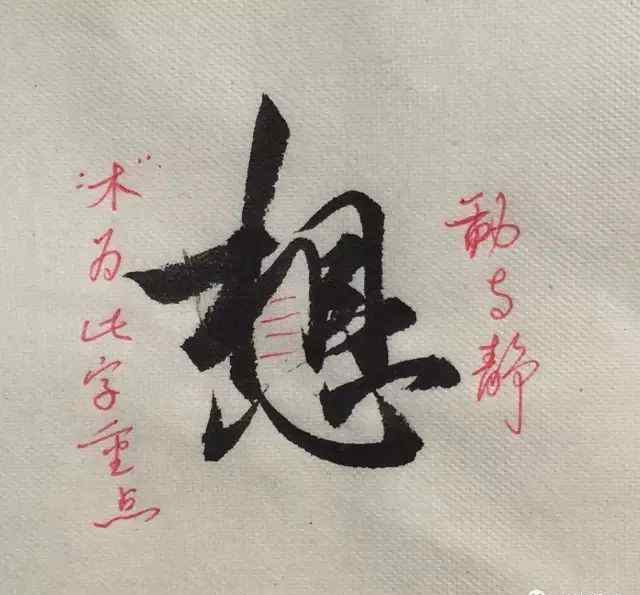 想
"木"为此字重点
動与静